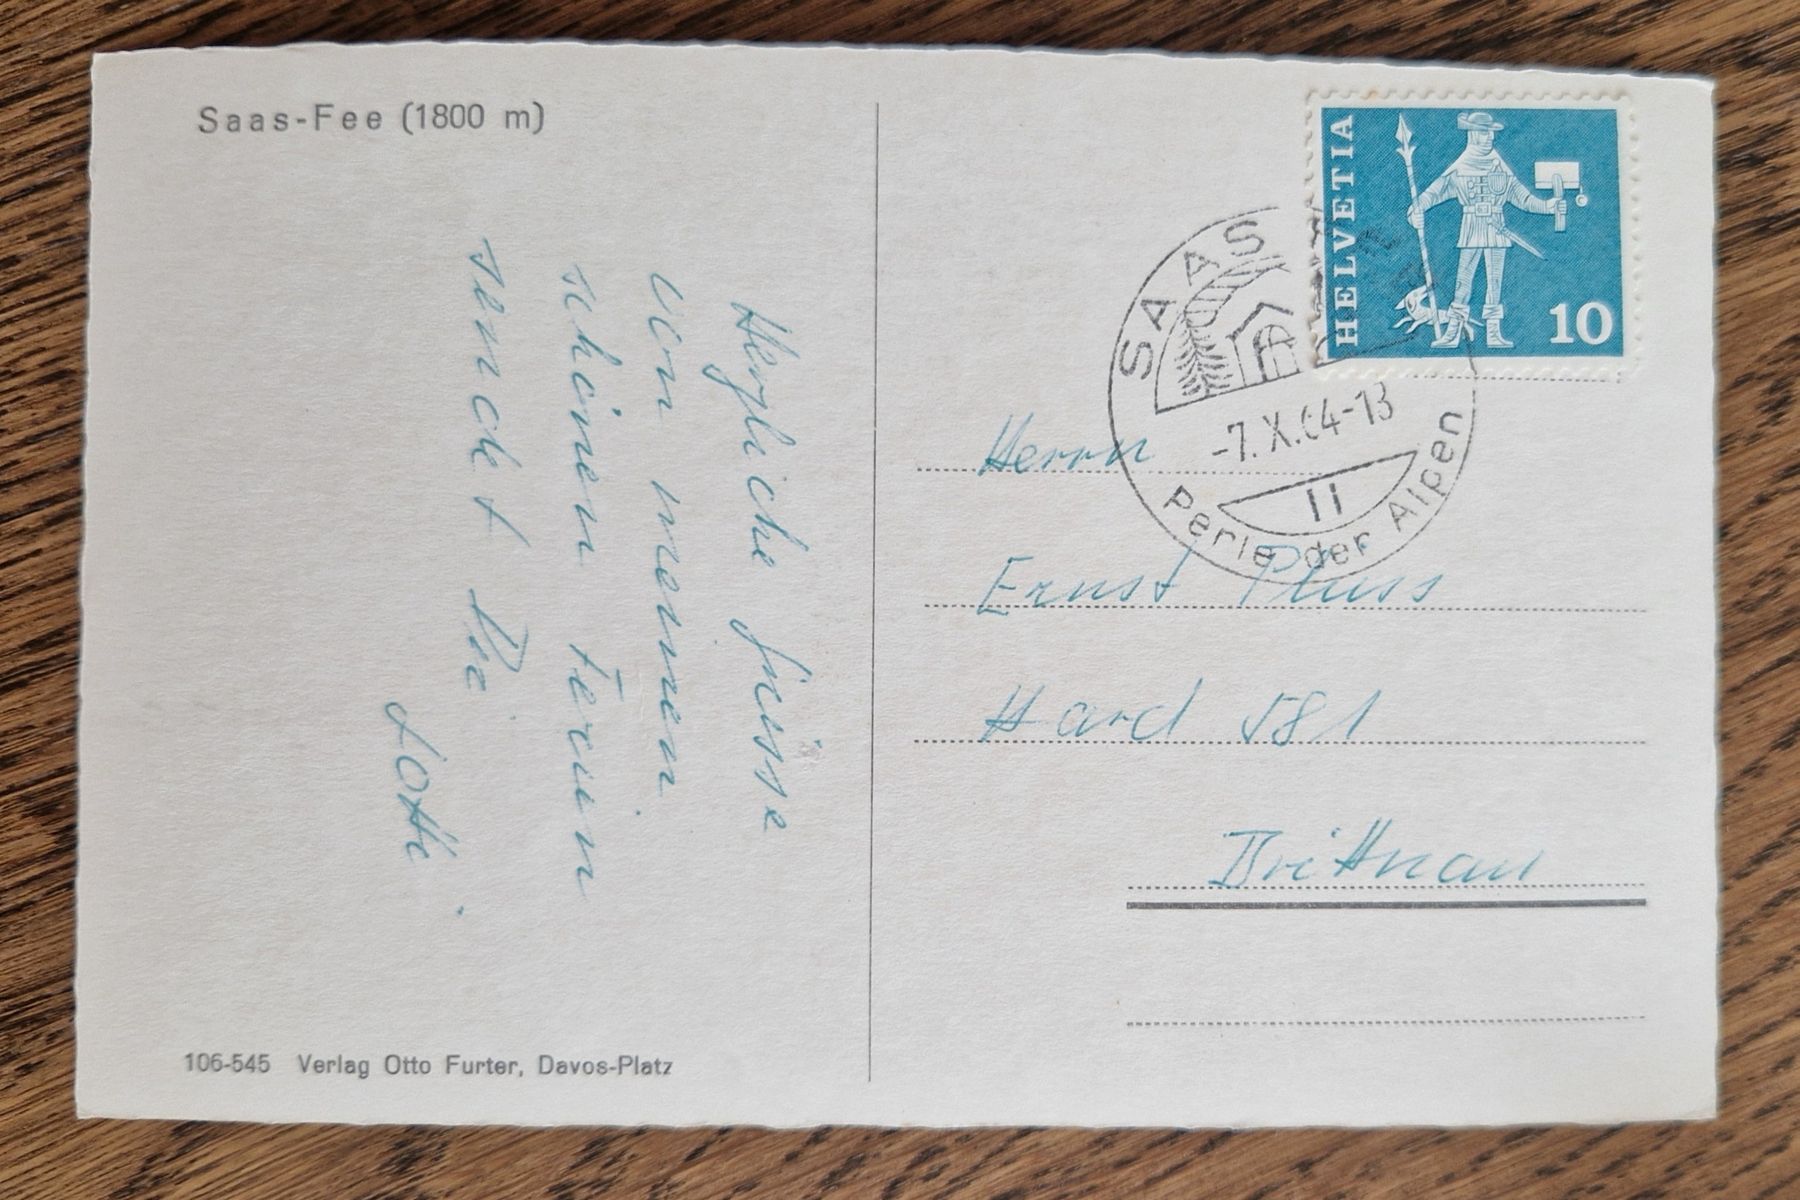 Saas-Fee (1800 m)
Herzliche Grüsse
von meinen
schönen Ferien
sendet Dir
Lotti.
106-545 Verlag Otto Furter, Davos-Platz
HELVETIA
10
SAAS
-7.X.64-13
11
Perle der Alpen
Herrn
Ernst Plüss
Hard 581
Brittnau